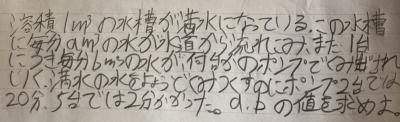 容積1m³の水槽が満水になっている。この水槽
に毎分am³の水が水道から流れこみ、また1台
につき毎分bm³の水が何台かのポンプでくみ出され
ていく。満水の水をちょうどくみつくすのにポンプ2台では
20分、5台では2分かかった。a, bの値を求めよ。